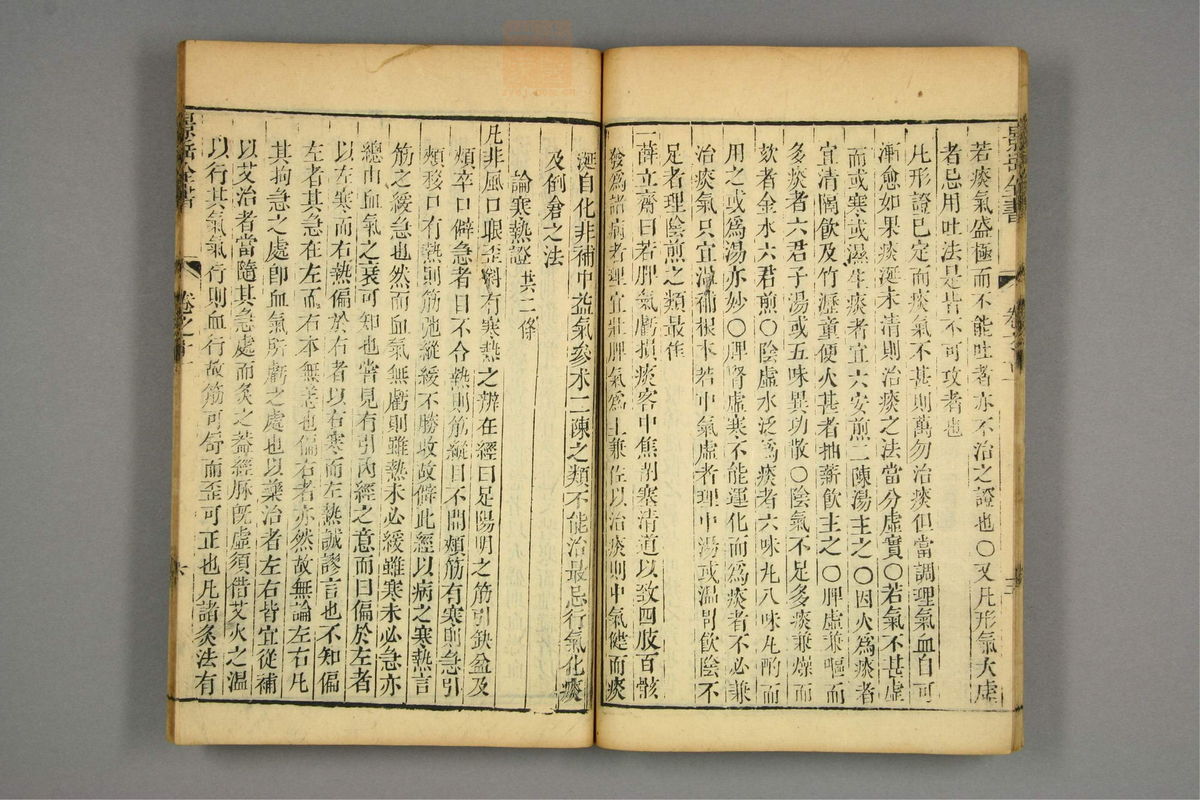 若痰氣盛極而不能吐者亦不治之證也〇又凡形氣大虛
者忌用吐法是皆不可攻者也
一凡形證已定而痰氣不甚則萬勿治痰但當調理氣血自可
漸愈如果痰涎未清則治痰之法當分虛實〇若氣不甚虛
而或寒或濕生痰者宜六安煎二陳湯主之〇因火爲痰者
宜清膈飲及竹瀝童便火甚者抽薪飲主之〇脾虛兼嘔而
多痰者六君子湯或五味異功散〇陰氣不足多痰兼燥而
欬者金水六君煎〇陰虛水泛爲痰者六味丸八味丸酌而
用之或爲湯亦妙〇脾腎虛寒不能運化而爲痰者不必兼
治痰氣只宜溫補根本若中氣虛者理中湯或温胃飲陰不
足者理陰煎之類最佳
一薛立齋曰若脾氣虧損痰客中焦閉塞清道以致四肢百骸
發爲諸病者理宜壯脾氣爲主兼佐以治痰則中氣健而痰
涎自化非補中益氣參术二陳之類不能治最忌行氣化痰
及倒倉之法
論寒熱證 共二條
凡非風口眼歪斜有寒熱之辨在經曰足陽明之筋引缺盆及
頰卒口僻急者目不合熱則筋縱目不開頰筋有寒則急引
頰移口有熱則筋弛縱緩不勝收故僻此經以病之寒熱言
筋之緩急也然而血氣無虧則雖熱未必緩雖寒未必急亦
總由血氣之衰可知也嘗見有引內經之意而曰偏於左者
以左寒而右熱偏於右者以右寒而左熱誠謬言也不知偏
左者其急在左而右本無恙也偏右者亦然故無論左右凡
其拘急之處卽血氣所虧之處也以藥治者左右皆宜從補
以艾治者當隨其急處而灸之葢經脉旣虛須借艾火之溫
以行其氣氣行則血行故筋可舒而歪可正也凡諸灸法有
景岳全書
卷之十一
六